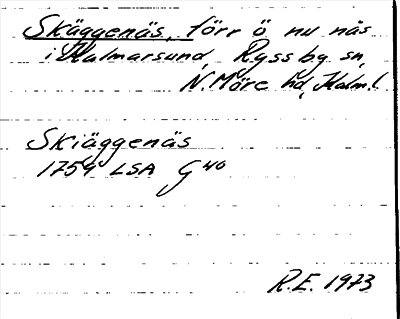 Skäggenäs, förr ö nu näs
i Kalmarsund, Ryssby sn,
N. Möre hd, Kalm. l.
Skiäggenäs
1759 LSA G 40
R.E. 1973